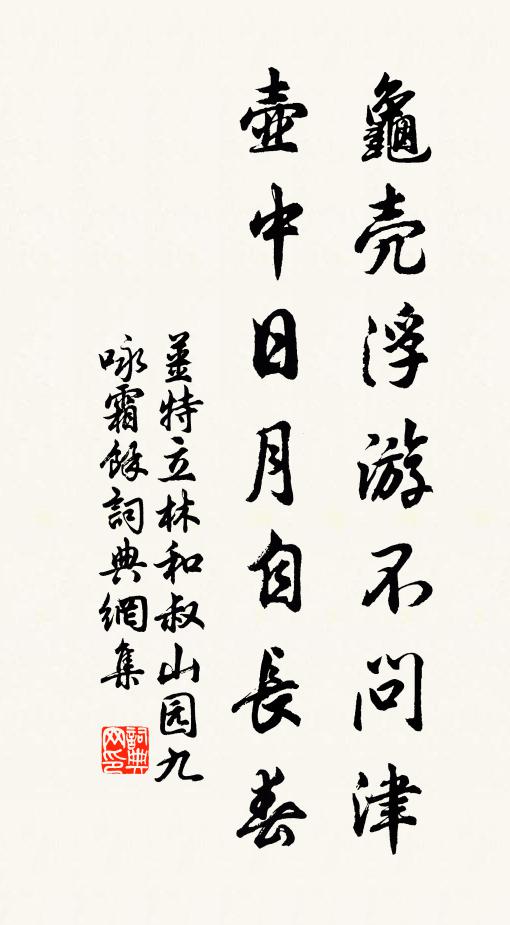 龜壳浮游不問津
壺中日月自長春
姜特立林和叔山园九
咏霜餘詞典網集
詞典
网印